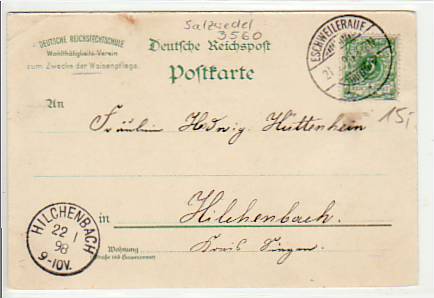 Salzwedel
3560
DEUTSCHE REICHSFECHTSCHULE
Wohlthätigkeits-Verein
zum Zwecke der Waisenpflege.
Deutsche Reichspost
Postkarte
ESCHWEILERAUE
An
15,-
Fräulein Hedwig Hüttenhein
in Hilchenbach.
HILCHENBACH
22 1
98
9-10V.
Wohnung
Kreis Siegen.